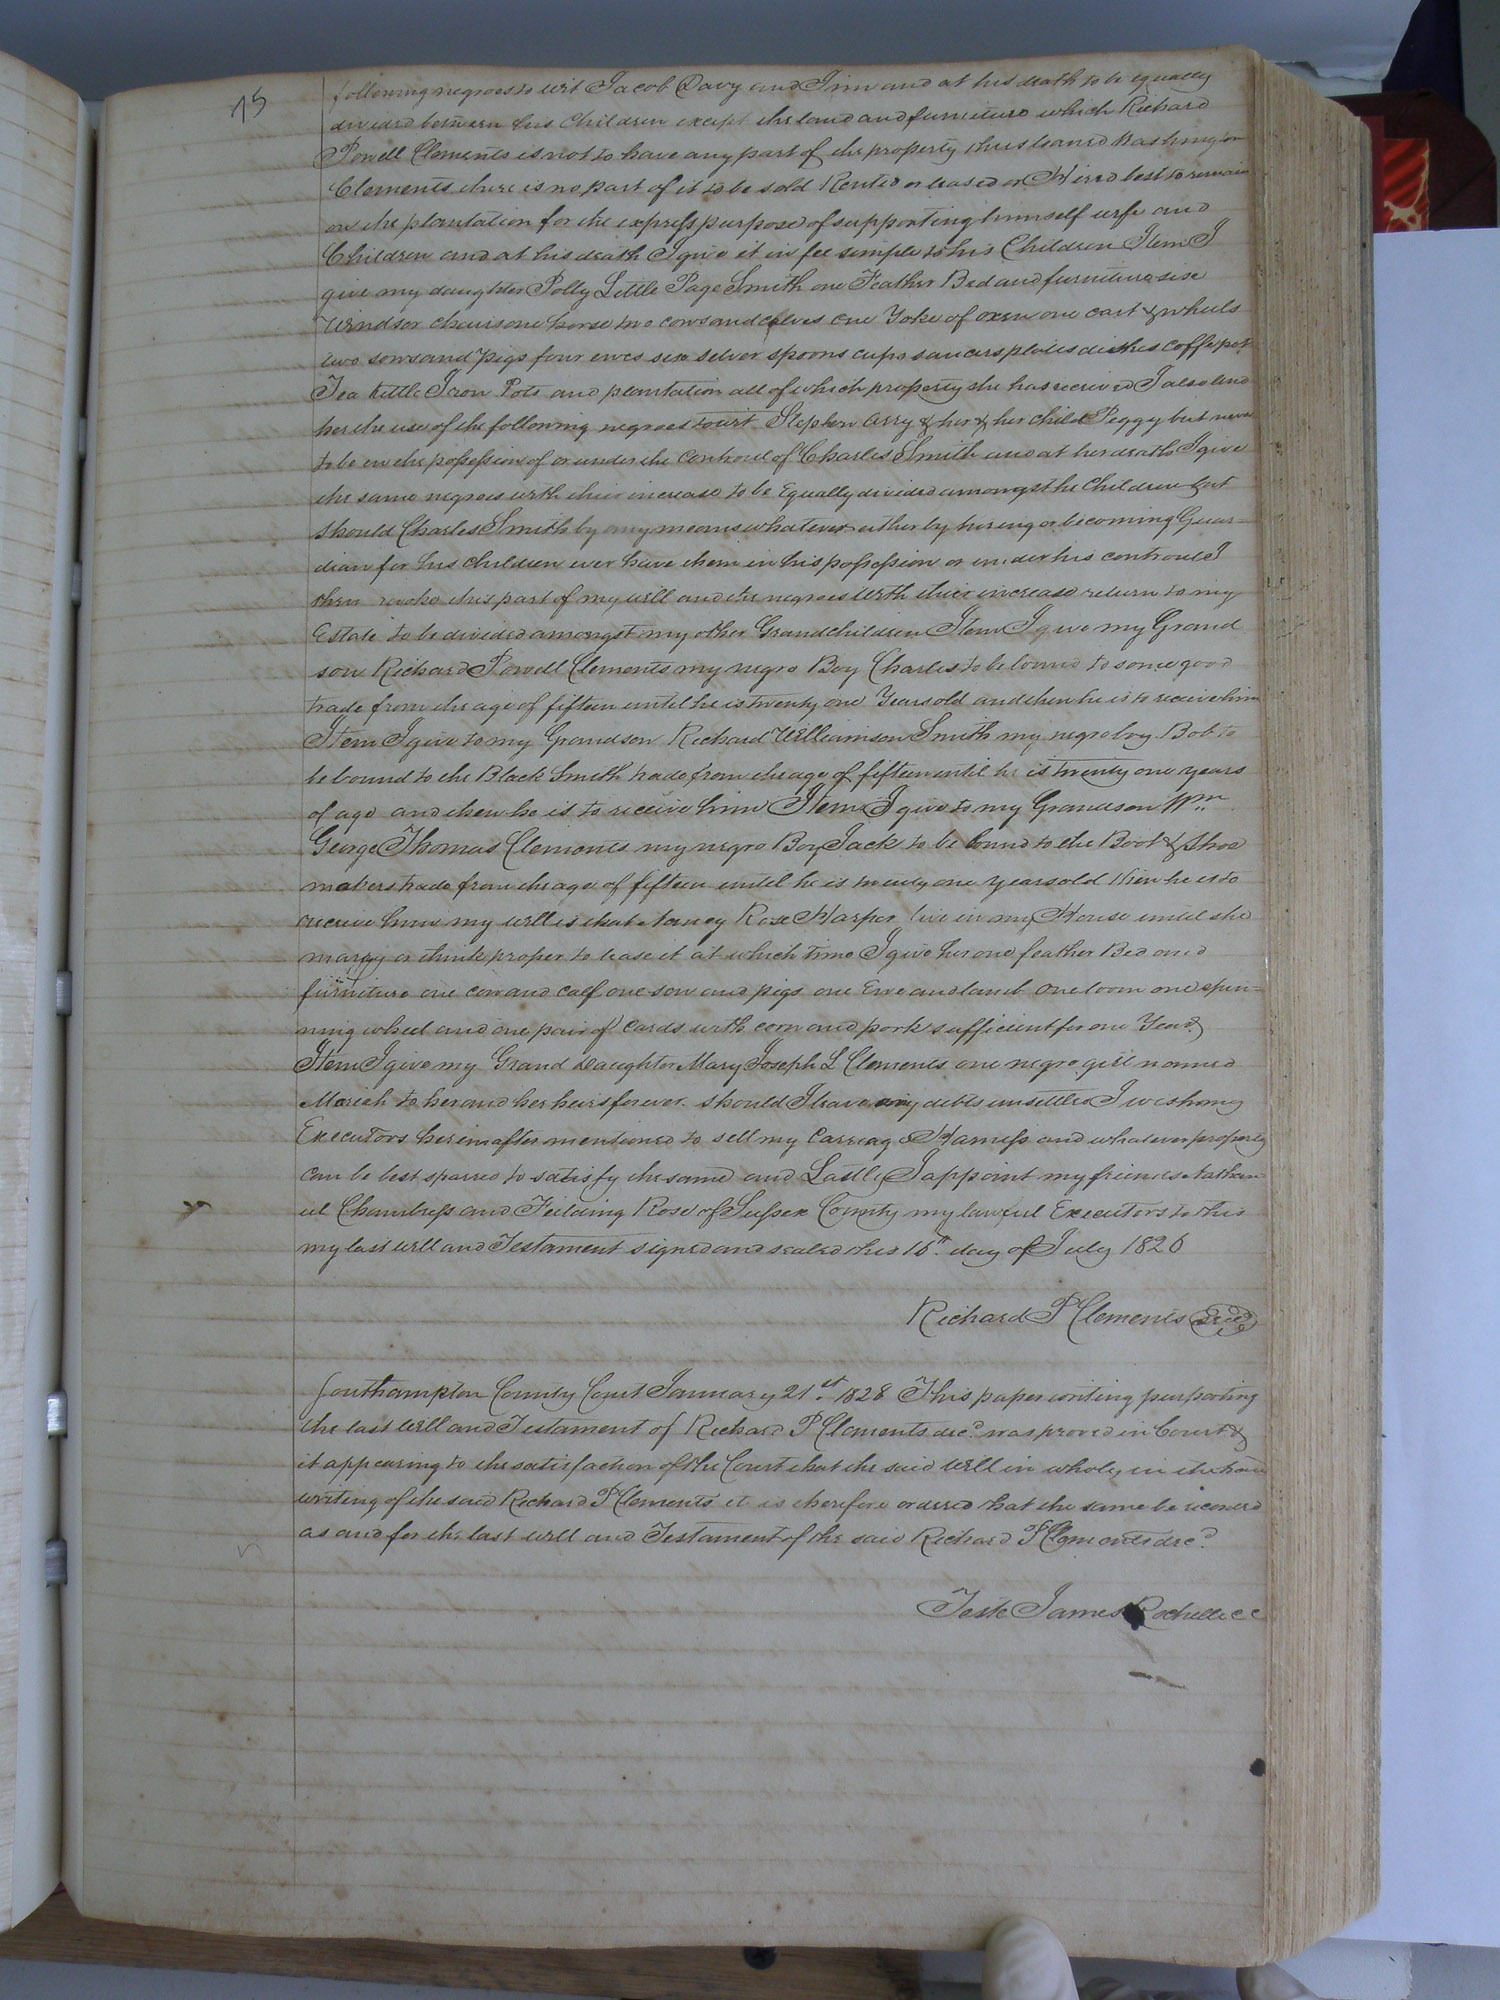 75
following negroes to wit Jacob Davy and Jinn and at his death to be equally
divided between his Children except the land and furniture which Richard
Powell Clements is not to have any part of the property thus loaned Washington
Clements there is no part of it to be sold Rented or leased or Hired best to remain
on the plantation for the express purpose of supporting himself wife and
Children and at his death I give it in fee simple to his Children Item I
give my daughter Polly Little Page Smith one Feather Bed and furniture six
Windsor chairs one horse two cows and calves one Yoke of oxen one cart & wheels
two sows and pigs four ewes six silver spoons cups saucers plates dishes coffepot
Tea Kettle Iron Pots and plantation all of which property she has received I also lend
her the use of the following negroes to wit Stephen & her & her child Peggy but never
to be in the possession of or under the controul of Charles Smith and at her death I give
the same negroes with their increase to be Equally divided amongst he Children but
should Charles Smith by any means whatever either by hireing or becoming Guar=
dian for his children ever have them in his possession or under his controul I
then revoke this part of my will and the negroes with their increase return to my
Estate to be divided amongst my other Grandchildren Item I give my Grand
son Richard Powell Clements my negro Boy Charles to be bound to some good
trade from the age of fifteen until he is twenty one Years old and then he is to receive him
Item I give to my Grandson Richard Williamson Smith my negro boy Bob to
be bound to the Black Smith trade from the age of fifteen until he is twenty one years
of age and then he is to receive him Item I give to my Grandson Wm
George Thomas Clements my negro Boy Jack to be bound to the Boot & Shoe
makers trade from the age of fifteen until he is twenty one years old then he is to
receive him my will is that Nancy Rose Harper live in my House until she
marry or think proper to leave it at which time I give her one feather Bed and
furniture one cow and calf one sow and pigs one Ewe and lamb one loom one spin=
ning wheel and one pair of cards with corn and pork sufficient for one Year &
Item I give my Grand Daughter Mary Joseph L Clements one negro girl named
Mariah to her and her heirs forever should I leave any debts unsettled I wish my
Executors hereinafter mentioned to sell my Carriag & Harness and whatever property
can be best sparred to satisfy the same and Lastly I appoint my friends Nathan
iel Chambliss and Feilding Rose of Sussex County my lawful Executors to this
my last will and Testament signed and sealed this 16th day of July 1826
Richard P Clements Seal
Southampton County Court January 21st 1828 This paper writing purporting
the last Will and Testament of Richard P Clements decd was proved in Court &
it appearing to the satisfaction of the Court that the said Will in wholy in the hand
writing of the said Richard P Clements it is therefore ordered that the same be recorded
as and for the last will and Testament of the said Richard P Clements decd
Teste James Rochelle CC